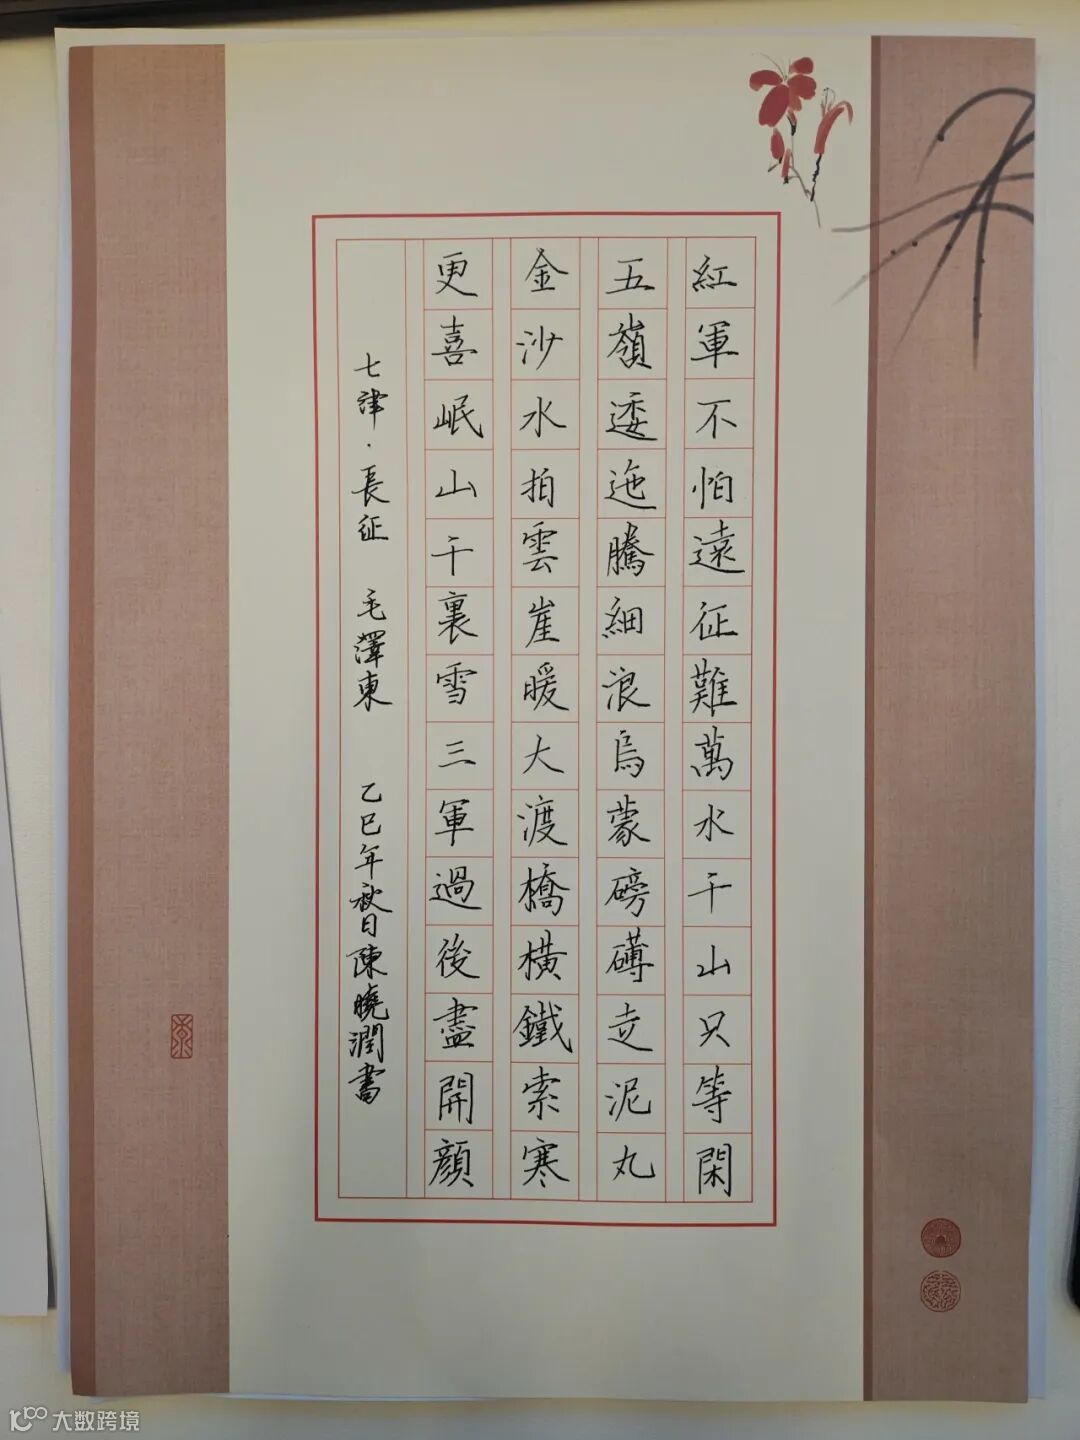 紅軍不怕遠征難萬水千山只等閑
五嶺逶迤騰細浪烏蒙磅礴走泥丸
金沙水拍雲崖暖大渡橋橫鐵索寒
更喜岷山千裏雪三軍過後盡開顔
七律·長征 毛澤東 乙巳年秋日陳曉潤書
大数跨境